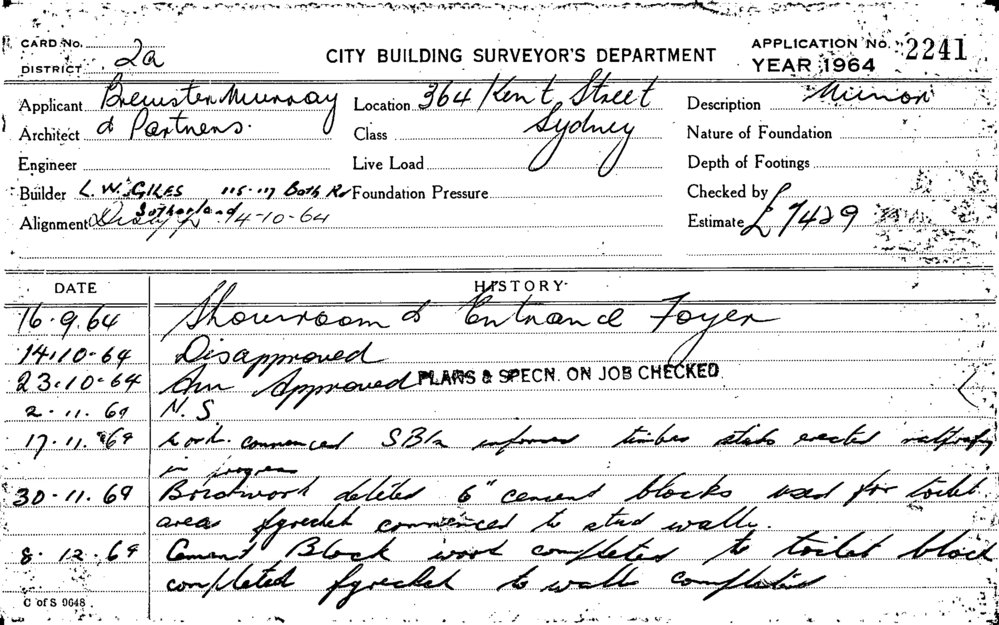 CARD No.
DISTRICT 2a
CITY BUILDING SURVEYOR'S DEPARTMENT
APPLICATION No. 2241
YEAR 1964
Applicant Brewster Murray
Architect & Partners.
Engineer
Builder L. W. GILES 115-117 Bath Rd
Sutherland
Alignment 14-10-64
Location 364 Kent Street
Sydney
Class
Live Load
Foundation Pressure
Description Minor
Nature of Foundation
Depth of Footings
Checked by
Estimate £7429
DATE HISTORY
16.9.64 Showroom & Entrance Foyer
14.10.64 Disapproved
23.10.64 Approved PLANS & SPECN. ON JOB CHECKED
2.11.64 N.S
17.11.64 Work commenced informed timber studs erected
in progress
30.11.64 deleted 6" cement blocks used for toilet
areas gyrock commenced to stud walls.
8.12.64 Cement Block work completed to toilet block
completed gyrock to walls completed
C of S 9648